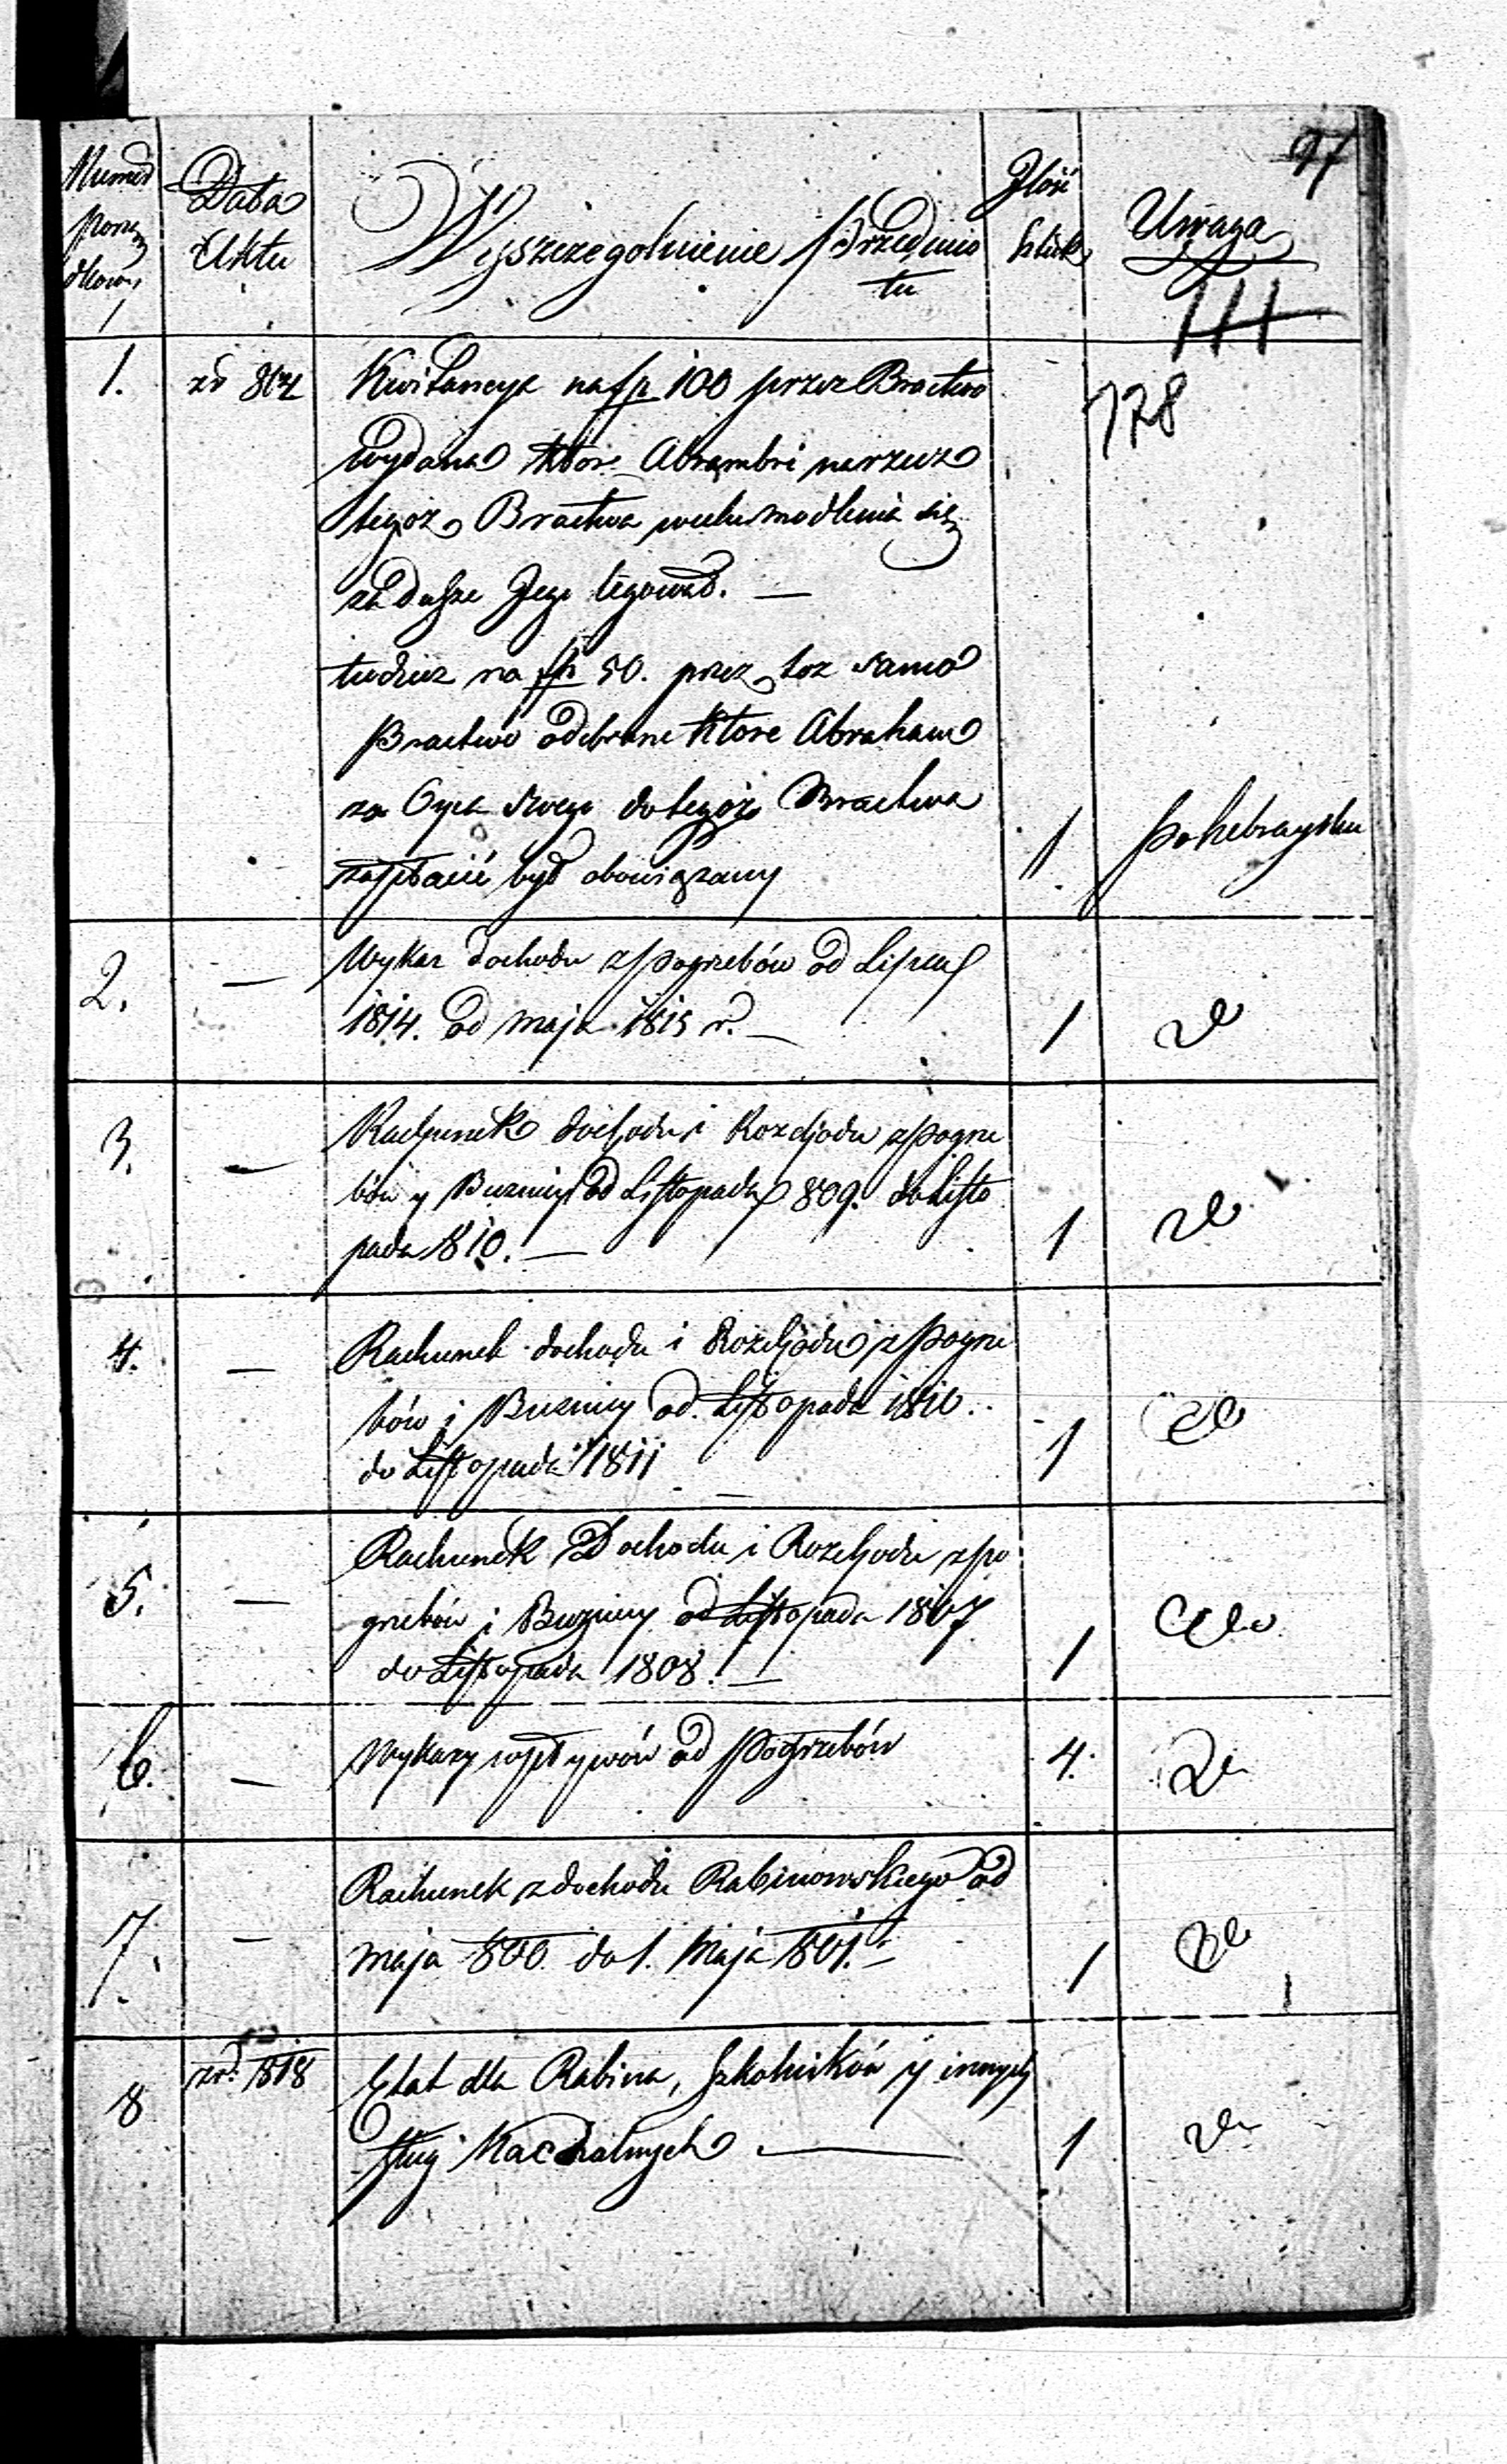 97
Numer porzą dkowy
Data Aktu
Wyszczegolnienie Przedmio tu
Ilość sztuk
Uwaga
111
128
1. zr 804 Kwitancya na fp 100 przez Bractwo
wydana które Abrambri na rzecz
tegoż Bractwa modlenia się
za dusze Jego legował. —
tudzież na fp 50. przez toż samo
Bractwo odebrane które Abraham
za Oyca swego do tegoż Bractwa
zapłacić był obowiązany 1 po hebraysku
2. — Wykaz dochodu z Pogrzebów od Lipca
1814. od maja 1815 r. — 1 do
3. — Rachunek dochodu i Rozchodu z Pogrze
bów y Buznicy od Listopada 809. do Listo
pada 810. — 1 do
4. — Rachunek dochodu i Rozchodu z Pogrze
bów i Buznicy od Listopada 1810.
do Listopada 1811 — 1 do
5. — Rachunek Dochodu i Rozchodu z po
grzebów i Buznicy od Listopada 1807
do Listopada 1808. — 1 do
6. — Wykazy wpływów od Pogrzebów 4. do
7. — Rachunek z dochodu Rabinowskiego od
maja 800. do 1. Maja 801. — 1 do
8 zr. 1818 Etat dla Rabina, Szkolników y innych
sług Kachalnych — 1 do